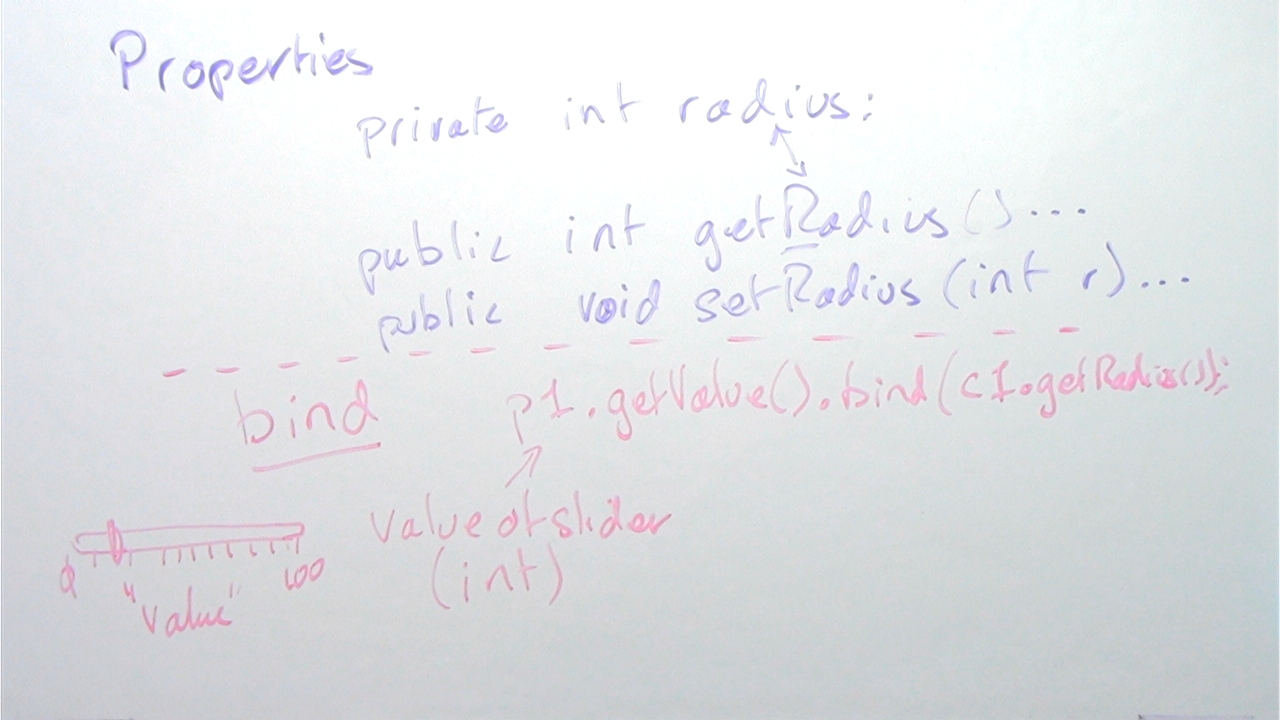 Properties
private int radius:
public int getRadius()...
public void setRadius(int r)...
bind
p1.getValue().bind(c1.getRadius());
value of slider
(int)
0
100
"value"